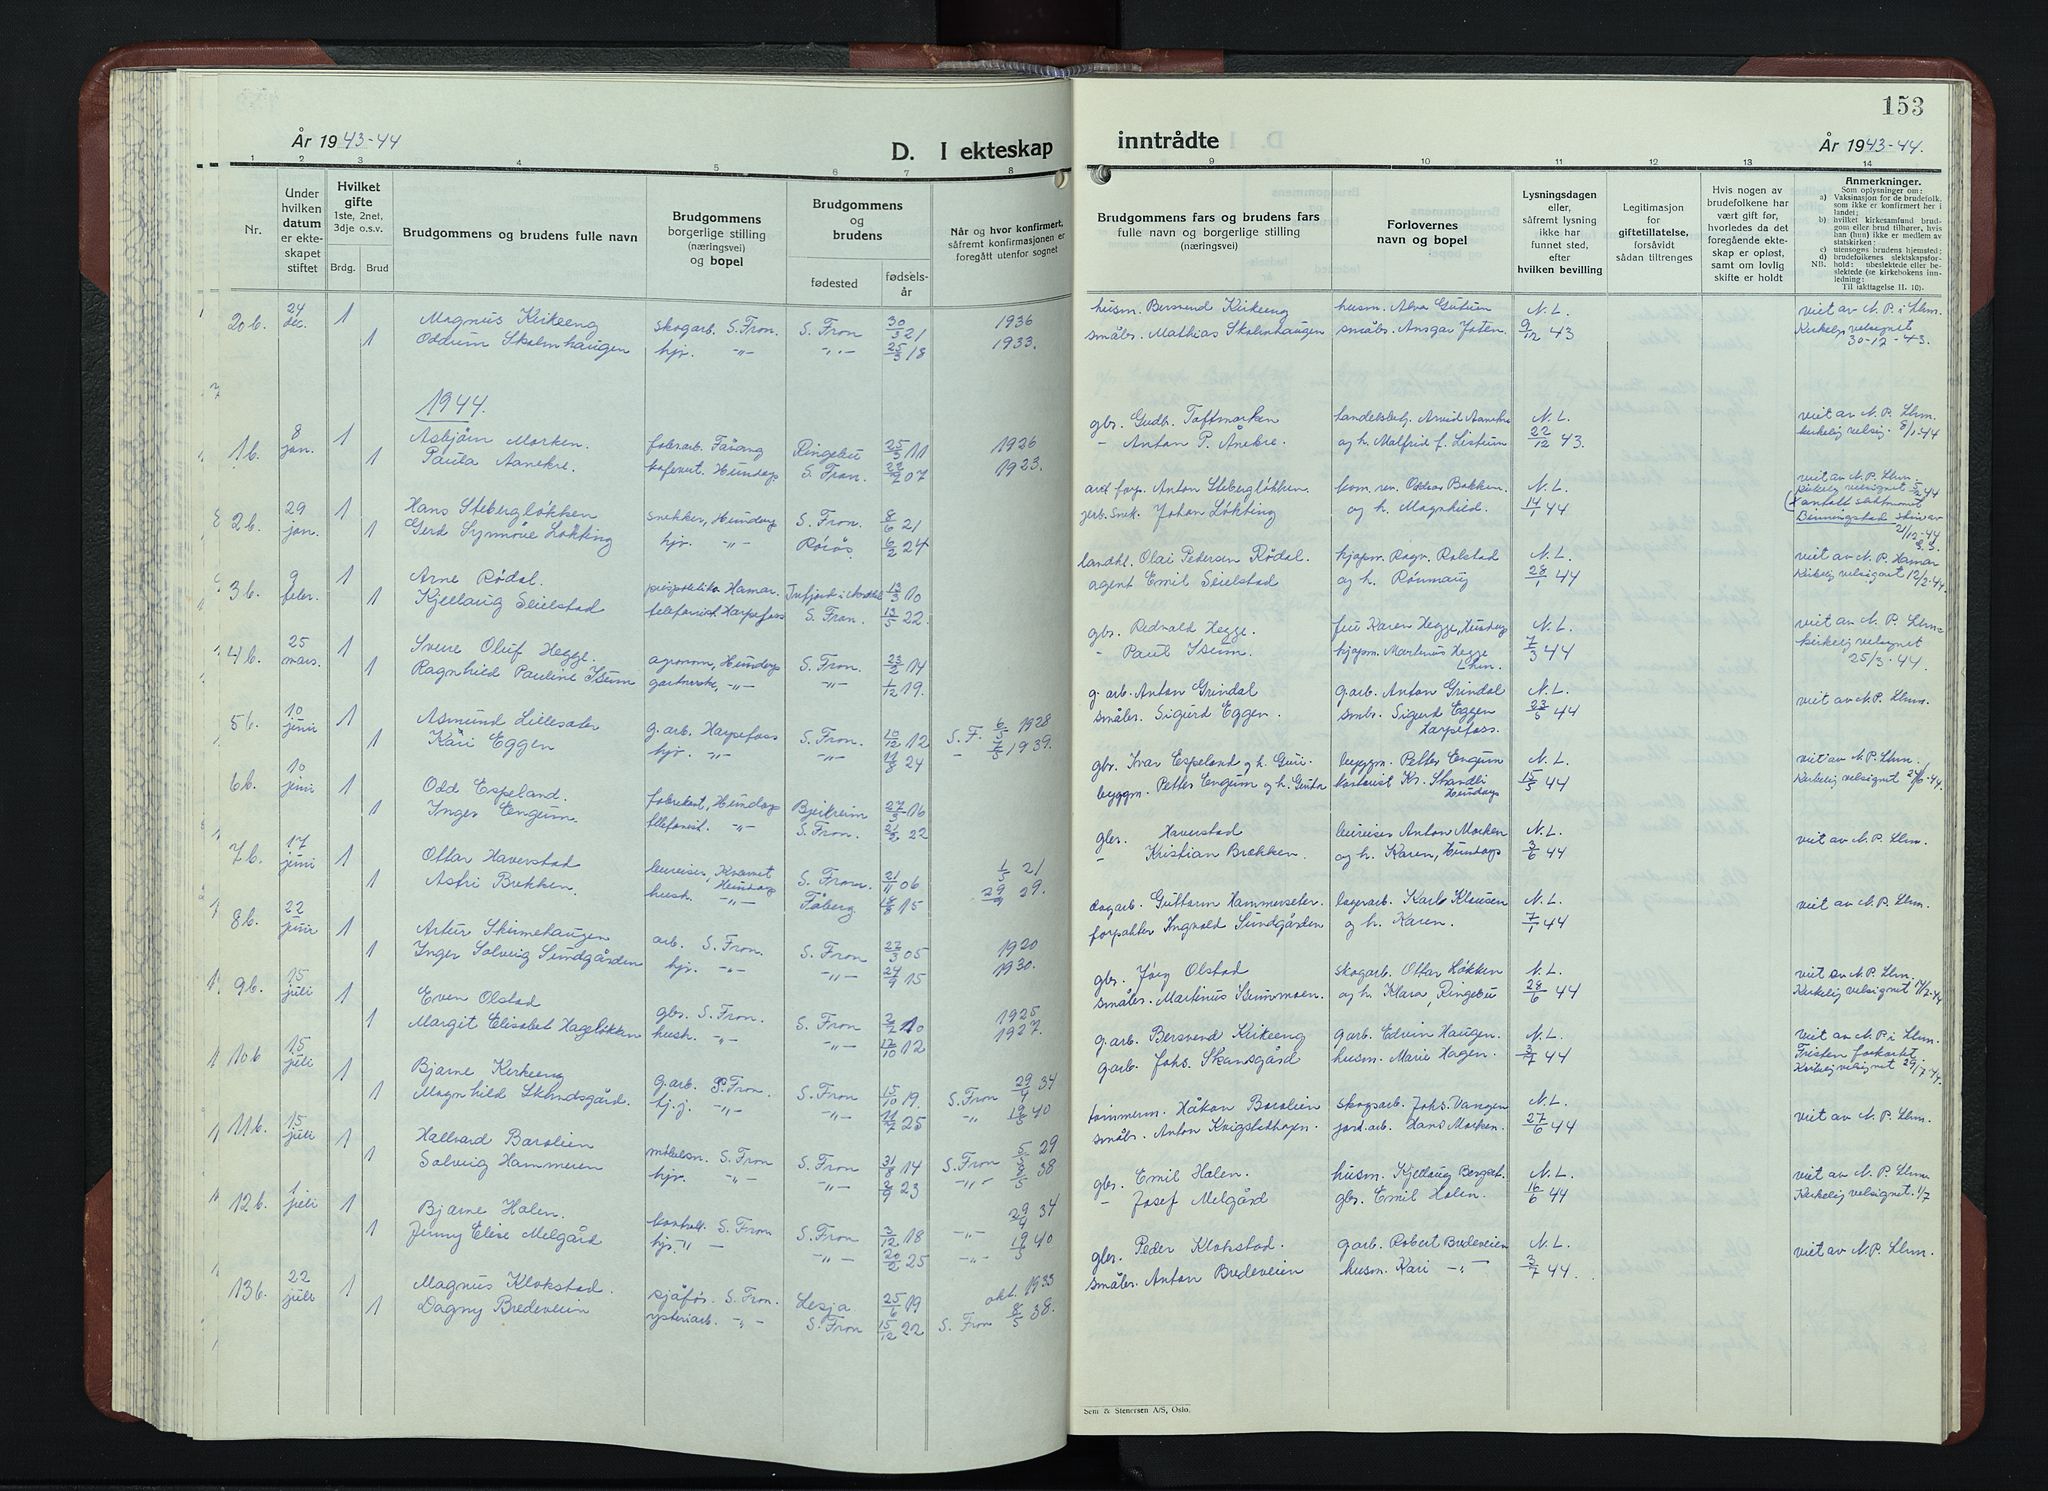 153
År 1943-44
D. I ekteskap
inntrådte
År 1943-44.
1 2 3 4 5 6 7 8
9 10 11 12 13 14
Nr.
Under hvilken datum er ekteskapet stiftet
Hvilket gifte
1ste, 2net, 3dje o.s.v.
Brdg. Brud
Brudgommens og brudens fulle navn
Brudgommens borgerlige stilling (næringsvei) og bopel
Brudgommens og brudens
fødested
fødselsår
Når og hvor konfirmert, såfremt konfirmasjonen er foregått utenfor sognet
Brudgommens fars og brudens fars fulle navn og borgerlige stilling (næringsvei)
Forlovernes navn og bopel
Lysningsdagen eller, såfremt lysning ikke har funnet sted, efter hvilken bevilling
Legitimasjon for giftetillatelse, forsåvidt sådan tiltrenges
Hvis nogen av brudefolkene har vært gift før, hvorledes da det foregående ekteskap er opløst, samt om lovlig skifte er holdt
Anmerkninger.
Som oplysninger om:
a) Vaksinasjon for de brudefolk, som ikke er konfirmert her i landet;
b) hvilket kirkesamfund brudgom eller brud tilhører, hvis han (hun) ikke er medlem av statskirken;
c) utensogns brudens hjemsted;
d) brudefolkenes slektskapsforhold:
NB. ubeslektede eller beslektede (se kirkebokens innledning:
Til iakttagelse II. 10).
20b. 24 dec. 1 Magnus Kirkeeng skogarb. S. Fron S. Fron 30/3 21 1936 husm. Bersvend Kirkeeng N. L. viet av N. P. i Lhm.
1 Oddrun Skolmhaugen hjv. -"- -"- 25/3 18 1933. småbr. Mathias Skolmhaugen småbr. Ansgar Joten 9/12 43 Kirkelig velsignet 30-12-43.
1944.
1b. 8 jan. 1 Asbjørn Morken. Fåvang Ringebu 25/5 11 1926 gbr. Gudb. Toftmarken Arvid Aanekre N. L. viet av N. P. Lhm.
1 Paula Aanekre. Hundorp S. Fron. 22/9 07 1923. - Anton P. Ånekre. og h. Malfrid f. Listum 22/12 43. kirkelig velsig. 8/1-44
2b. 29 jan. 1 Hans Stebergløkken snekker, Hundorp S. Fron. 8/6 21 Anton Stebergløkken. Bakken. N. L. viet av N. P. Lhm.
1 Gerd Synnøve Løkting hjv. -"- Røros 6/2 24 Johan Løkting og h. Magnhild. 14/1 44 Kirkelig velsignet
3b. 9 feber. 1 Arne Rødal. Hamar. 13/3 10 landh. Olai Pedersen Rødal. kjøpm. Ragn. Rolstad N. L. viet av N. P. Hamar
1 Kjellaug Seielstad telefonist Harpefoss S. Fron. 13/5 22. agent Emil Seielstad og h. Rønnaug 28/1 44 Kirkelig velsignet 12/2-44.
4b. 25 mars. 1 Sverre Oluf Hegge. agronom, Hundorp S. Fron. 23/2 14 gbr. Redvald Hegge. fru Karen Hegge, Hundorp N. L. viet av N. P. Lhm-
1 Ragnhild Pauline Iseum -"- -"- 1/12 19. - Paul Iseum. kjøpm. Martinus Hegge Lhm. 7/3 44 kirkelig velsignet 25/3-44.
5b. 10 juni 1 Asmund Lillesæter g. arb. Harpefoss S. Fron. 10/12 12 S. F. 1928 g. arb. Anton Grindal g. arb. Anton Grindal N. L. viet av N. P. Lhm.
1 Kåri Eggen hjv. -"- -"- 11/8 24 - 1939. småbr. Sigurd Eggen. smbr. Sigurd Eggen Harpefoss. 23/5 44
6b. 10 juni 1 Odd Espeland. Hundorp Bjerkreim 27/3 16 gbr. Ivar Espeland og h. Guri. byggm. Petter Engum N. L. viet av N. P. Lhm.
1 Inger Engum. telefonist. -"- S. Fron. 22 byggm. Petter Engum og h. Guida Kr. Strandli Hundorp 15/5 44 Kirkelig velsignet
7b. 17 juni 1 Ottar Haverstad Kvarvet Hundorp S. Fron. 21/11 06 1/5 21 gbr. Haverstad Anton Morken N. L. viet av N. P. Lhm.
1 Astri Brekken. hush. -"- Fåberg 18/8 15 29/9 29. - Kristian Brekken. og h. Karen, Hundorp 3/6 44
8b. 22 juni 1 Artur Skimehaugen arb. S. Fron. S. Fron 22/3 05 1920 dagarb. Guttorm Hammerseter. lagerarb. Karle Klausen N. L. viet av N. P. Lhm.
1 Inger Solveig Sundgården hjv. -"- -"- 24/9 15 1930. forpakter Ingvald Sundgården og h. Karen. 7/1 44
9b. 15 juli 1 Even Olstad gbr. S. Fron. S. Fron 2/2 10 1925 gbr. Jørg Olstad skogarb. Ottar Løkken N. L. viet av N. P. Lhm.
1 Margit Elisabet Hageløkken hush. -"- -"- 17/10 12 1927. småbr. Martinus og h. Klara Ringebu 28/6 44 Kirkelig velsignet
10b 15 juli 1 Bjarne Kirkeeng g. arb. S. Fron. S. Fron 15/10 19. S. Fron 29/4 34 g. arb. Bersvend Kirkeeng g. arb. Edvin Haugen. N. L. viet av N. P. i Lhm.
1 Magnhild Skansgård. hj. j. -"- -"- 11/7 25 -"- 19/5 40 garb. Johs. Skansgård husm. Marie Hagen. 3/7 44 Fristen forkortet. Kirkelig velsignet 29/7-44.
11b. 15 juli 1 Hallvard Barolien S. Fron S. Fron 31/8 14 S. Fron 29 tømmerm. Håkon Barolien skogsarb. Johs. Vangen N. L. viet av N. P. Lhm.
1 Solveig Hammeren hjv. -"- -"- 2/9 23 -"- 38 småbr. Anton jord. arb. Hans Morken. 27/6 44
12b. 1 juli 1 Bjarne Halen. S. Fron S. Fron 3/12 18 -"- 29/4 34 gbr. Emil Halen. husm. Kjellaug N. L. viet av N. P. Lhm.
1 Jenny Elise Melgård hjv. -"- -"- 20/2 25 -"- 19/5 40 - Josef Melgård gbr. Emil Halen. 16/6 44 Kirkelig velsignet. 1/7
13b. 22 juli 1 Magnus Klokstad. sjåfør. S. Fron. Lesja 25/6 19 okt. 1933 gbr. Peder Klokstad. g. arb. Robert Bredeveien N. L. viet av N. P. Lhm.
1 Dagny Bredeveien ysteriarb. -"- S. Fron 15/12 22 S. Fron 8/5 38. småbr. Anton Bredeveien husm. Kari -"- 3/7 44.
Sem & Stenersen A/S, Oslo.